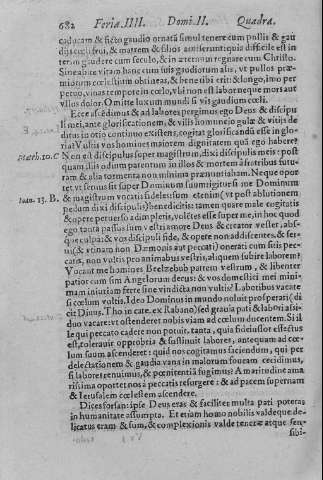 682 Feria. IIII. Domi. II. Quadra.
caducam & ficto gaudio ornatā simul tenere cum pusillis & gau
dijs cœli frui, & matrem & filios
difficile est in
terra gaudere cum seculo, & in æternum regnare cum Christo.
Sine abite vitam hanc cum suis gaudiorum alis, vt pullos
miorum cœlestium obtineat, & bene tibi erit: & longo, imo per
petuo, vinas tempore in cœlo, vbi non est labor neque mors aut
vllus dolor. Omitte luxum mundi si vis gaudium cœli.
Ecce ascēdimus & ad labores pergimus ego Deus & discipu
li mei, ante glorificationem, & vilis homuncio gulæ & vitijs de
ditus in otio continuo existens, cogitat glorificandū esse in glo
ria? Vultis vos homines maiorem dignitatem quā ego habere?
Matth. 10. C Non est discipulus super magistrum, dixi discipulis meis: post
quam illis odium parentum in illos & mortem à fratribus futu-
ram & alia tormenta non minima prænuntiabam. Neque opor
tet vt seruus sit super Dominum suum: igitur si me Dominum
Ioan. 13. B. & magistrum vocatis fideles: sum etenim (vt post ablutionem
pedum dixi discipulis) benedicitis: tamen quare male cogitatis
& opere peruerso adimpletis, volētes esse super me, in hoc quod
ego, tanta passus sum vestri amore Deus & creator vester, abs-
que culpa: & vos discipuli fide, & opere non addiscentes, & ser-
ui (& vtinam non Dæmonis aut peccati) onerati cum sitis pec-
catis, non vultis pro animabus vestris, aliquem subire laborem?
Vocant me homines Beelzebub patrem vestrum, & libenter
patior cum sim Angelorum deus: & vos domestici mei mini-
mam iniuriam ferre sine vindicta non vultis? Laboribus vacate
si cœlum vultis. Ideo Dominus in mundo noluit prosperari (di
cit Diuus. Tho. in cate. ex Rabano) sed grauia pati & labori assi-
duo vacare: vt ostenderet nobis viam ad cœlum ducentem. Si il
le qui peccato cadere non potuit, tanta, quia fideiussor effectus
est, tolerauit opprobria & sustinuit labores, antequam ad cœ-
lum suum ascenderet: quid nos cogitamus faciendum, qui per
delectationem & gaudia vana in malorum foueam cecidimus,
si labores renuimus, & pœnitentiā fugimus? Amaritudine ama
rissima oportet nos à peccatis resurgere: & ad patrem supernam
& Ierusalem cœlestem ascendere.
Dices forsan: ipse Deus eras & faciliter multa pati poteras
in humanitate assumpta. Et etiam homo nobilis valde que de-
licatus eram & sum, & complexionis valde teneræ atque sen-
sibi-